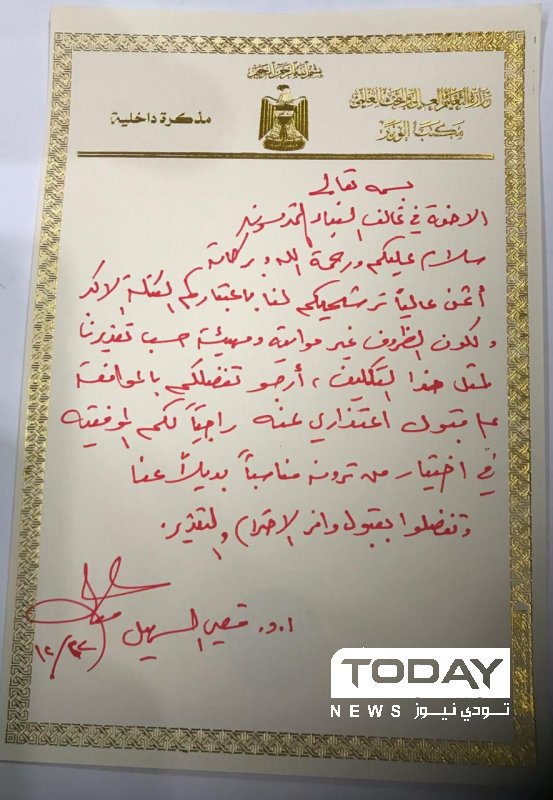 بسم الله الرحمن الرحيم
وزارة التعليم العالي والبحث العلمي
مكتب الوزير
مذكرة داخلية
بسمه تعالى
الاخوة في تحالف البناء المحترمون
سلام عليكم ورحمة الله وبركاته
أثمن عالياً ترشيحكم لنا باعتباركم الكتلة الاكبر
ولكون الظروف غير مواتية ومهيئة حسب تقديرنا
لمثل هذا التكليف، أرجو تفضلكم بالموافقة
على قبول اعتذاري عنه راجياً لكم الموفقية
في اختيار من ترونه مناسباً بديلاً عنا
وتفضلوا بقبول وافر الاحترام والتقدير.
ا.د. قصي السهيل
١٢/٢٢
TODAY
NEWS تودي نيوز